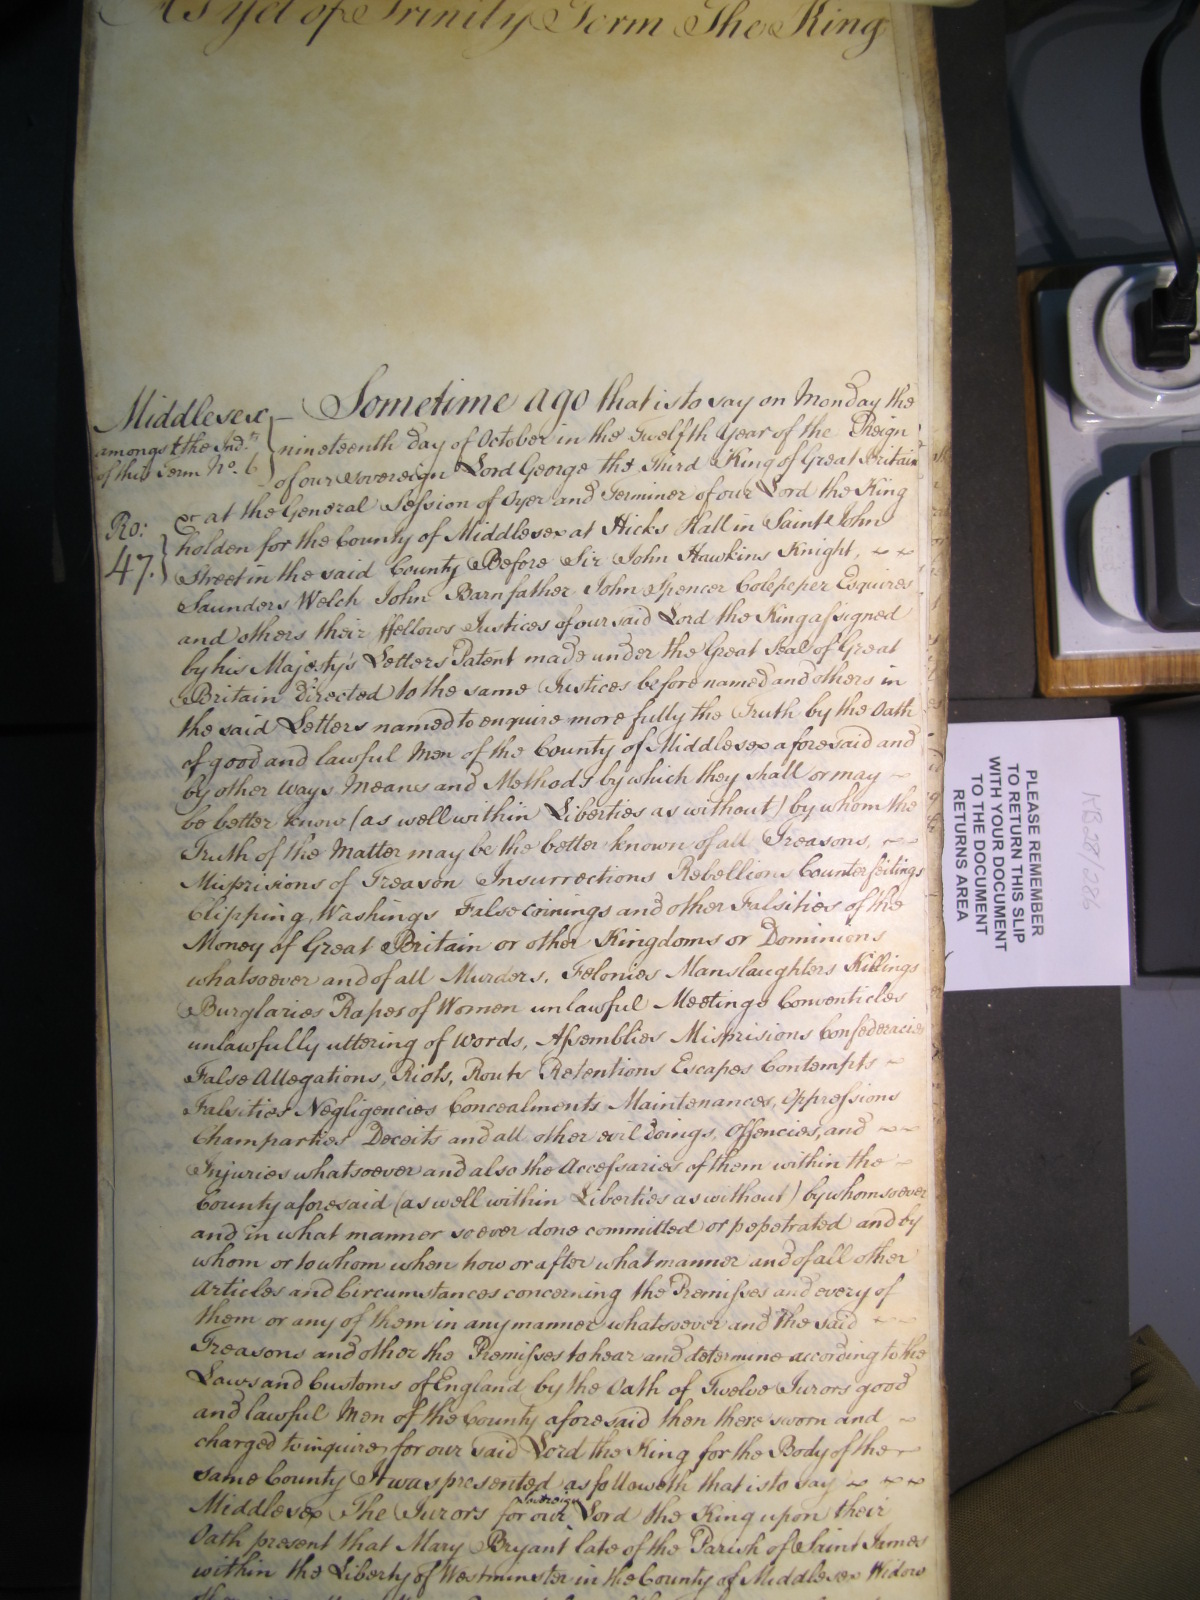 As yet of Trinity Term The King
Middlesex Sometime ago that is to say on Monday the
amongst the Indts nineteenth day of October in the Twelfth Year of the Reign
of this Term No. 6 of our Sovereign Lord George the Third King of Great Britain
&c at the General Session of Oyer and Terminer of our Lord the King
Ro:
47. holden for the County of Middlesex at Hicks Hall in Saint John
Street in the said County Before Sir John Hawkins Knight,
Saunders Welch John Barnfather John Spencer Colepeper Esquires
and others their Fellows Justices of our said Lord the King assigned
by his Majesty's Letters Patent made under the Great Seal of Great
Britain Directed to the same Justices before named and others in
the said Letters named to enquire more fully the Truth by the Oath
of good and lawful Men of the County of Middlesex aforesaid and
by other Ways Means and Methods by which they shall or may
be better know (as well within Liberties as without) by whom the
Truth of the Matter may be the better known of all Treasons,
Misprisions of Treason Insurrections Rebellions Counterfeitings
Clipping, Washings False coinings and other Falsities of the
Money of Great Britain or other Kingdoms or Dominions
whatsoever and of all Murders, Felonies Manslaughters Killings
Burglaries Rapes of Women unlawful Meetings Conventicles
unlawfully uttering of Words, Assemblies Misprisions Confederacies
False Allegations, Riots, Routs Retentions Escapes Contempts
Falsities Negligencies Concealments Maintenances, Oppressions
Champarties Deceits and all other evil doings, Offencies, and
Injuries whatsoever and also the Accessaries of them within the
County aforesaid (as well within Liberties as without) by whomsoever
and in what manner soever done committed or pepetrated and by
whom or to whom when how or after what manner and of all other
Articles and Circumstances concerning the Premisses and every of
them or any of them in any manner whatsoever and the said
Treasons and other the Premisses to hear and determine according to the
Laws and Customs of England by the Oath of Twelve Jurors good
and lawful Men of the County aforesaid then there sworn and
charged to inquire for our said Lord the King for the Body of the
same County It was presented as followeth that is to say
Middlesex The Jurors for our Sovereign Lord the King upon their
Oath present that Mary Bryant late of the Parish of Saint James
within the Liberty of Westminster in the County of Middlesex Widow
PLEASE REMEMBER
TO RETURN THIS SLIP
WITH YOUR DOCUMENT
TO THE DOCUMENT
RETURNS AREA
KB28/286